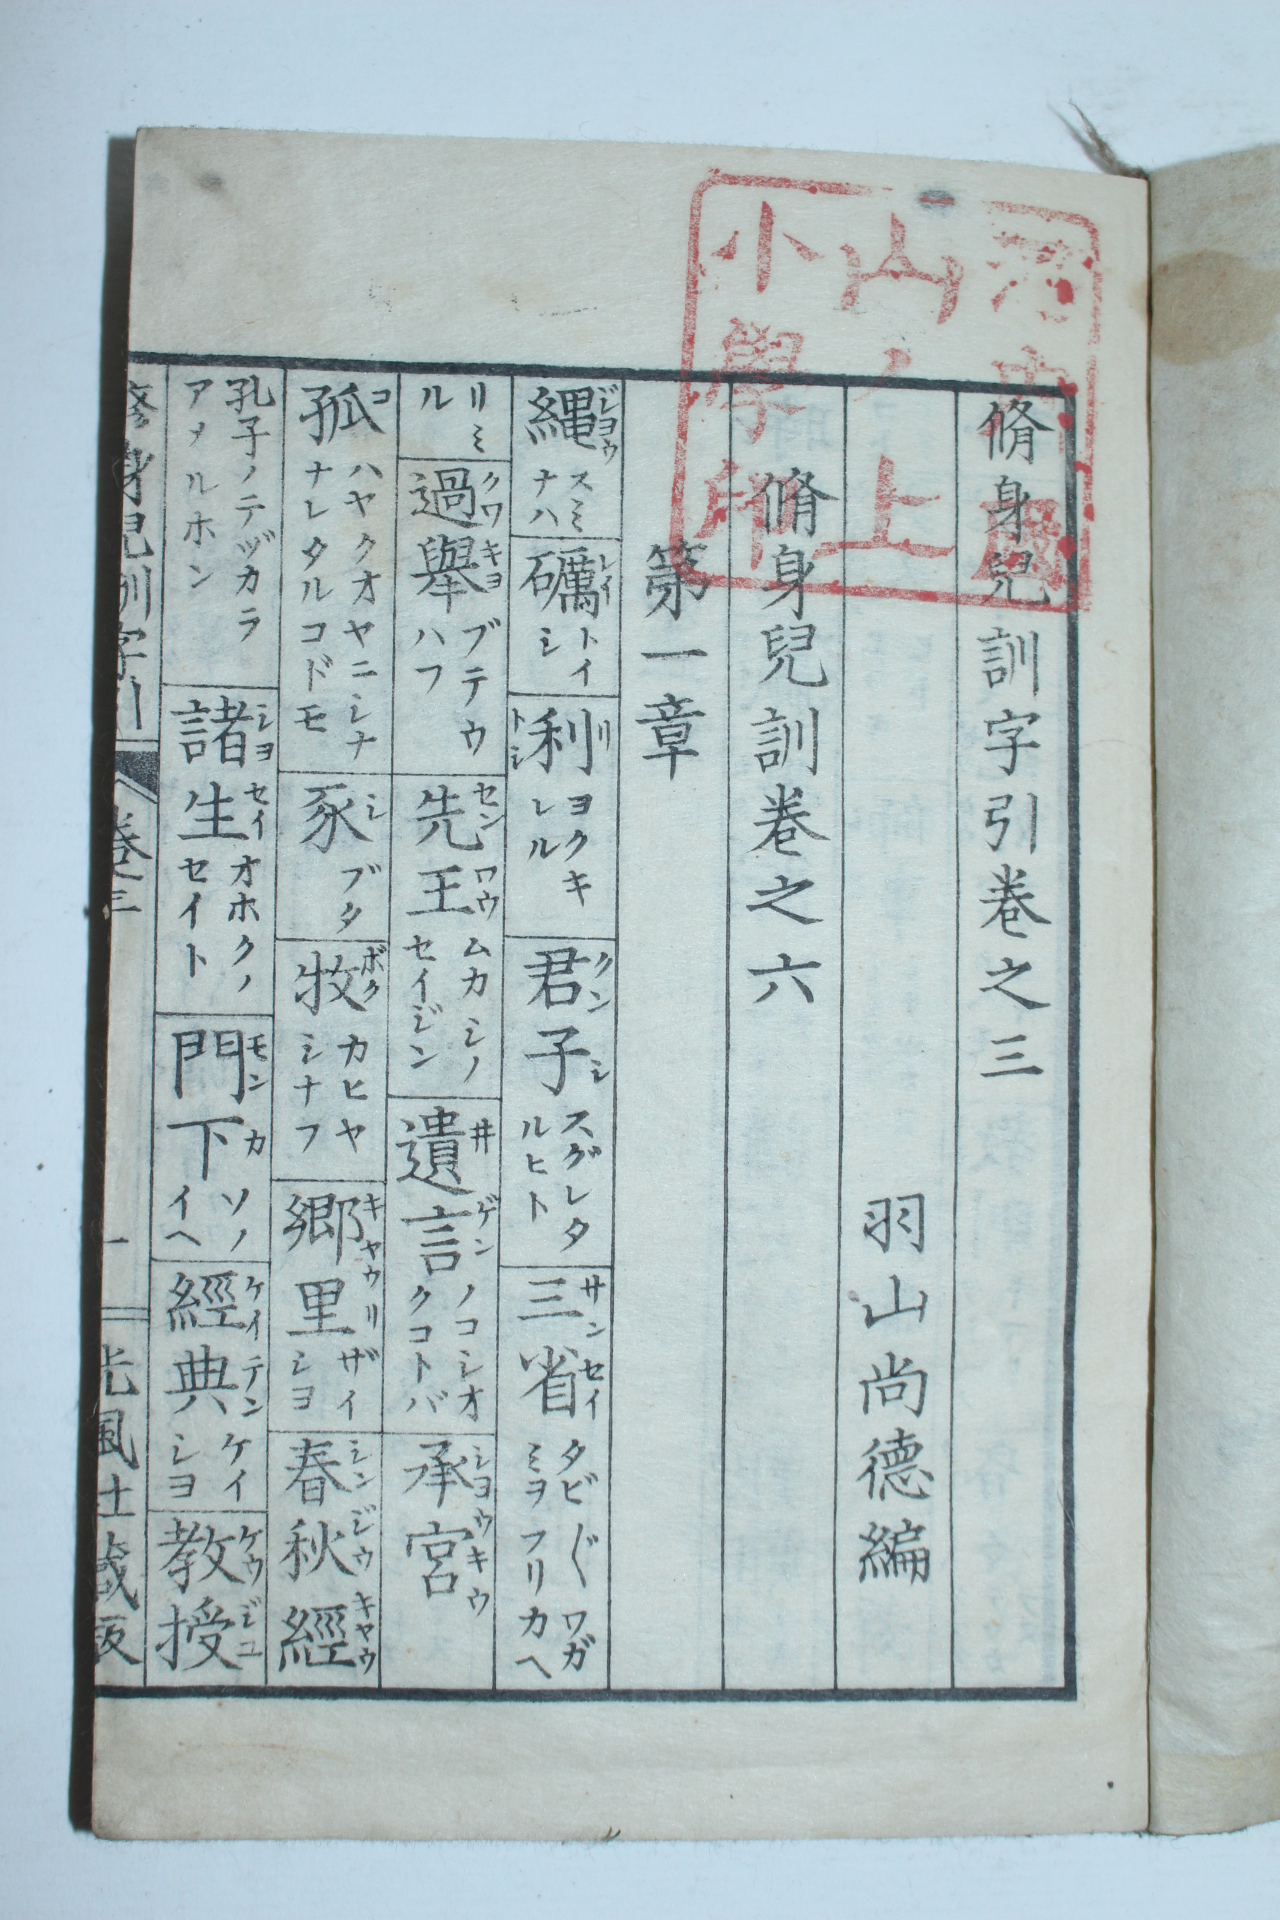 脩身兒訓字引卷之三
羽山尚德編
脩身兒訓卷之六
第一章
繩 ジヨウ スミナハ 礪 レイ トイシ 利 リ トシ ヨクキレル 君子 クンシ スグレタルヒト 三省 サンセイ タビ〴〵ワガミヲフリカヘ
リミル 過擧 クワキヨ ブテウハフ 先王 センワウ ムカシノセイジン 遺言 井ゲン ノコシオクコトバ 承宮 シヨウキウ
孤 コ ハヤクオヤニシナナレタルコドモ 豕 シ ブタ 牧 ボク カヒヤシナフ 鄉里 キヤウリ ザイシヨ 春秋經 シンジウキヤウ
孔子ノテヅカラアメルホン 諸生 シヨセイ オホクノセイト 門下 モンカ ソノイヘ 經典 ケイテン ケイシヨ 教授 ケウジユ
脩身兒訓字引 卷三 一 光風社藏版
山ノ上
小學印